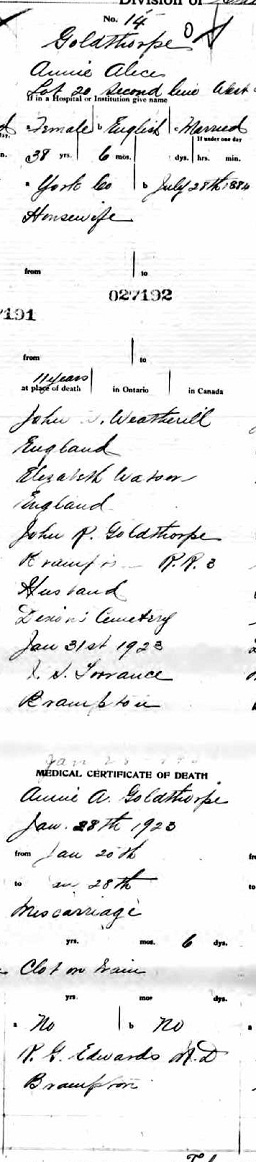 Division of
No. 14
Goldthorpe
Annie Alice
Lot 20 second line West
If in a Hospital or Institution give name
Female b English c Married
If under one day
38 yrs. 6 mos. dys. hrs. min.
a York Co b July 28th 1884
Housewife
from to
027192
7191
from to
11 years
at place of death in Ontario in Canada
John Weatherill
England
Elizabeth Watson
England
John R. Goldthorpe
R.R. 3
Husband
Cemetery
Jan 31st 1923
Torrance
Brampton
MEDICAL CERTIFICATE OF DEATH
Annie A. Goldthorpe
Jan. 28th 1923
from Jan 20th
to 28th
Miscarriage
yrs. mos. 6 dys.
Clot on brain
yrs mos dys.
a No b No
G. Edwards M.D
Brampton